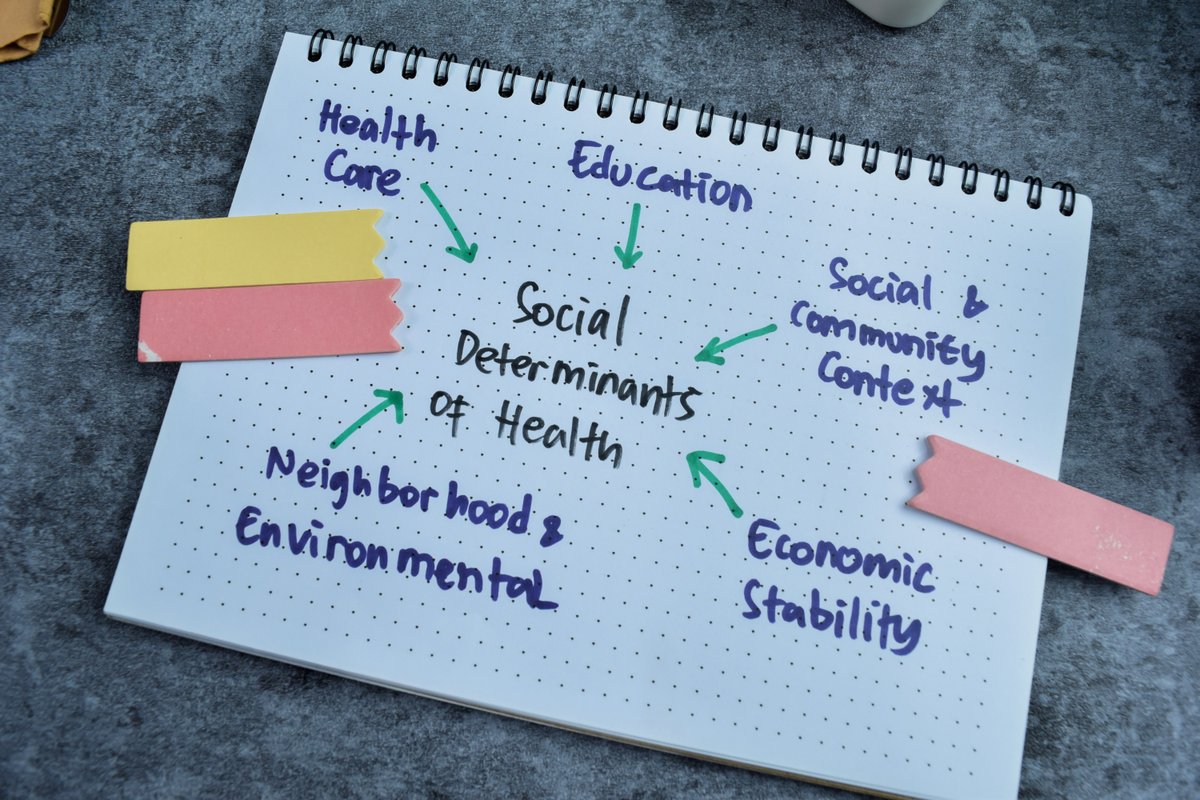 Health
Care
Education
Social &
Community
Context
Social
Determinants
of Health
Neighborhood &
Environmental
Economic
Stability